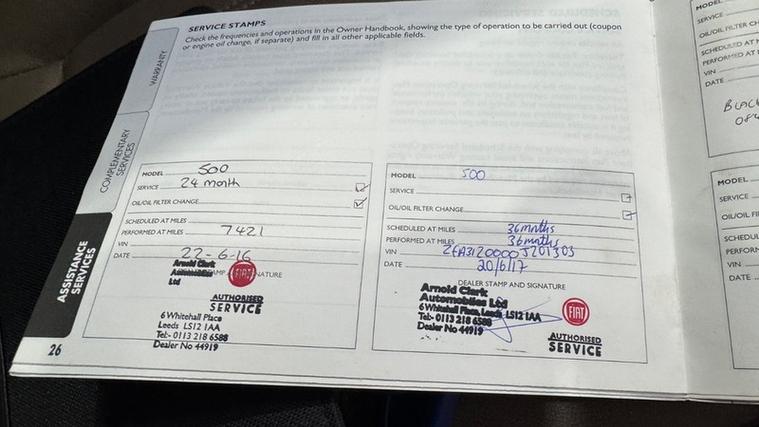 SERVICE STAMPS
Check the frequencies and operations in the Owner Handbook, showing the type of operation to be carried out (coupon
or engine oil change, if separate) and fill in all other applicable fields.
WARRANTY
COMPLEMENTARY
SERVICES
ASSISTANCE
SERVICES
MODEL 500
SERVICE 24 month
OIL/OIL FILTER CHANGE
SCHEDULED AT MILES
PERFORMED AT MILES 7421
VIN
DATE 22-6-16
Arnold Clark
Automobiles
Ltd
FIAT
AUTHORISED
SERVICE
6 Whitehall Place
Leeds LS12 1AA
Tel:- 0113 218 6588
Dealer No 44919
MODEL 500
SERVICE
OIL/OIL FILTER CHANGE
SCHEDULED AT MILES 36mnths
PERFORMED AT MILES 36mnths
VIN
DATE 20/6/17
DEALER STAMP AND SIGNATURE
Arnold Clark
Automobiles Ltd
6 Whitehall Place, Leeds LS12 1AA
Tel:- 0113 218 6588
Dealer No 44919
FIAT
AUTHORISED
SERVICE
26
SERVICE
OIL/OIL FILTER CH
SCHEDULED AT M
PERFORMED AT
VIN
DATE
BLACK
MODEL
SERVICE
OIL/OIL FI
SCHEDUL
PERFORM
VIN
DATE